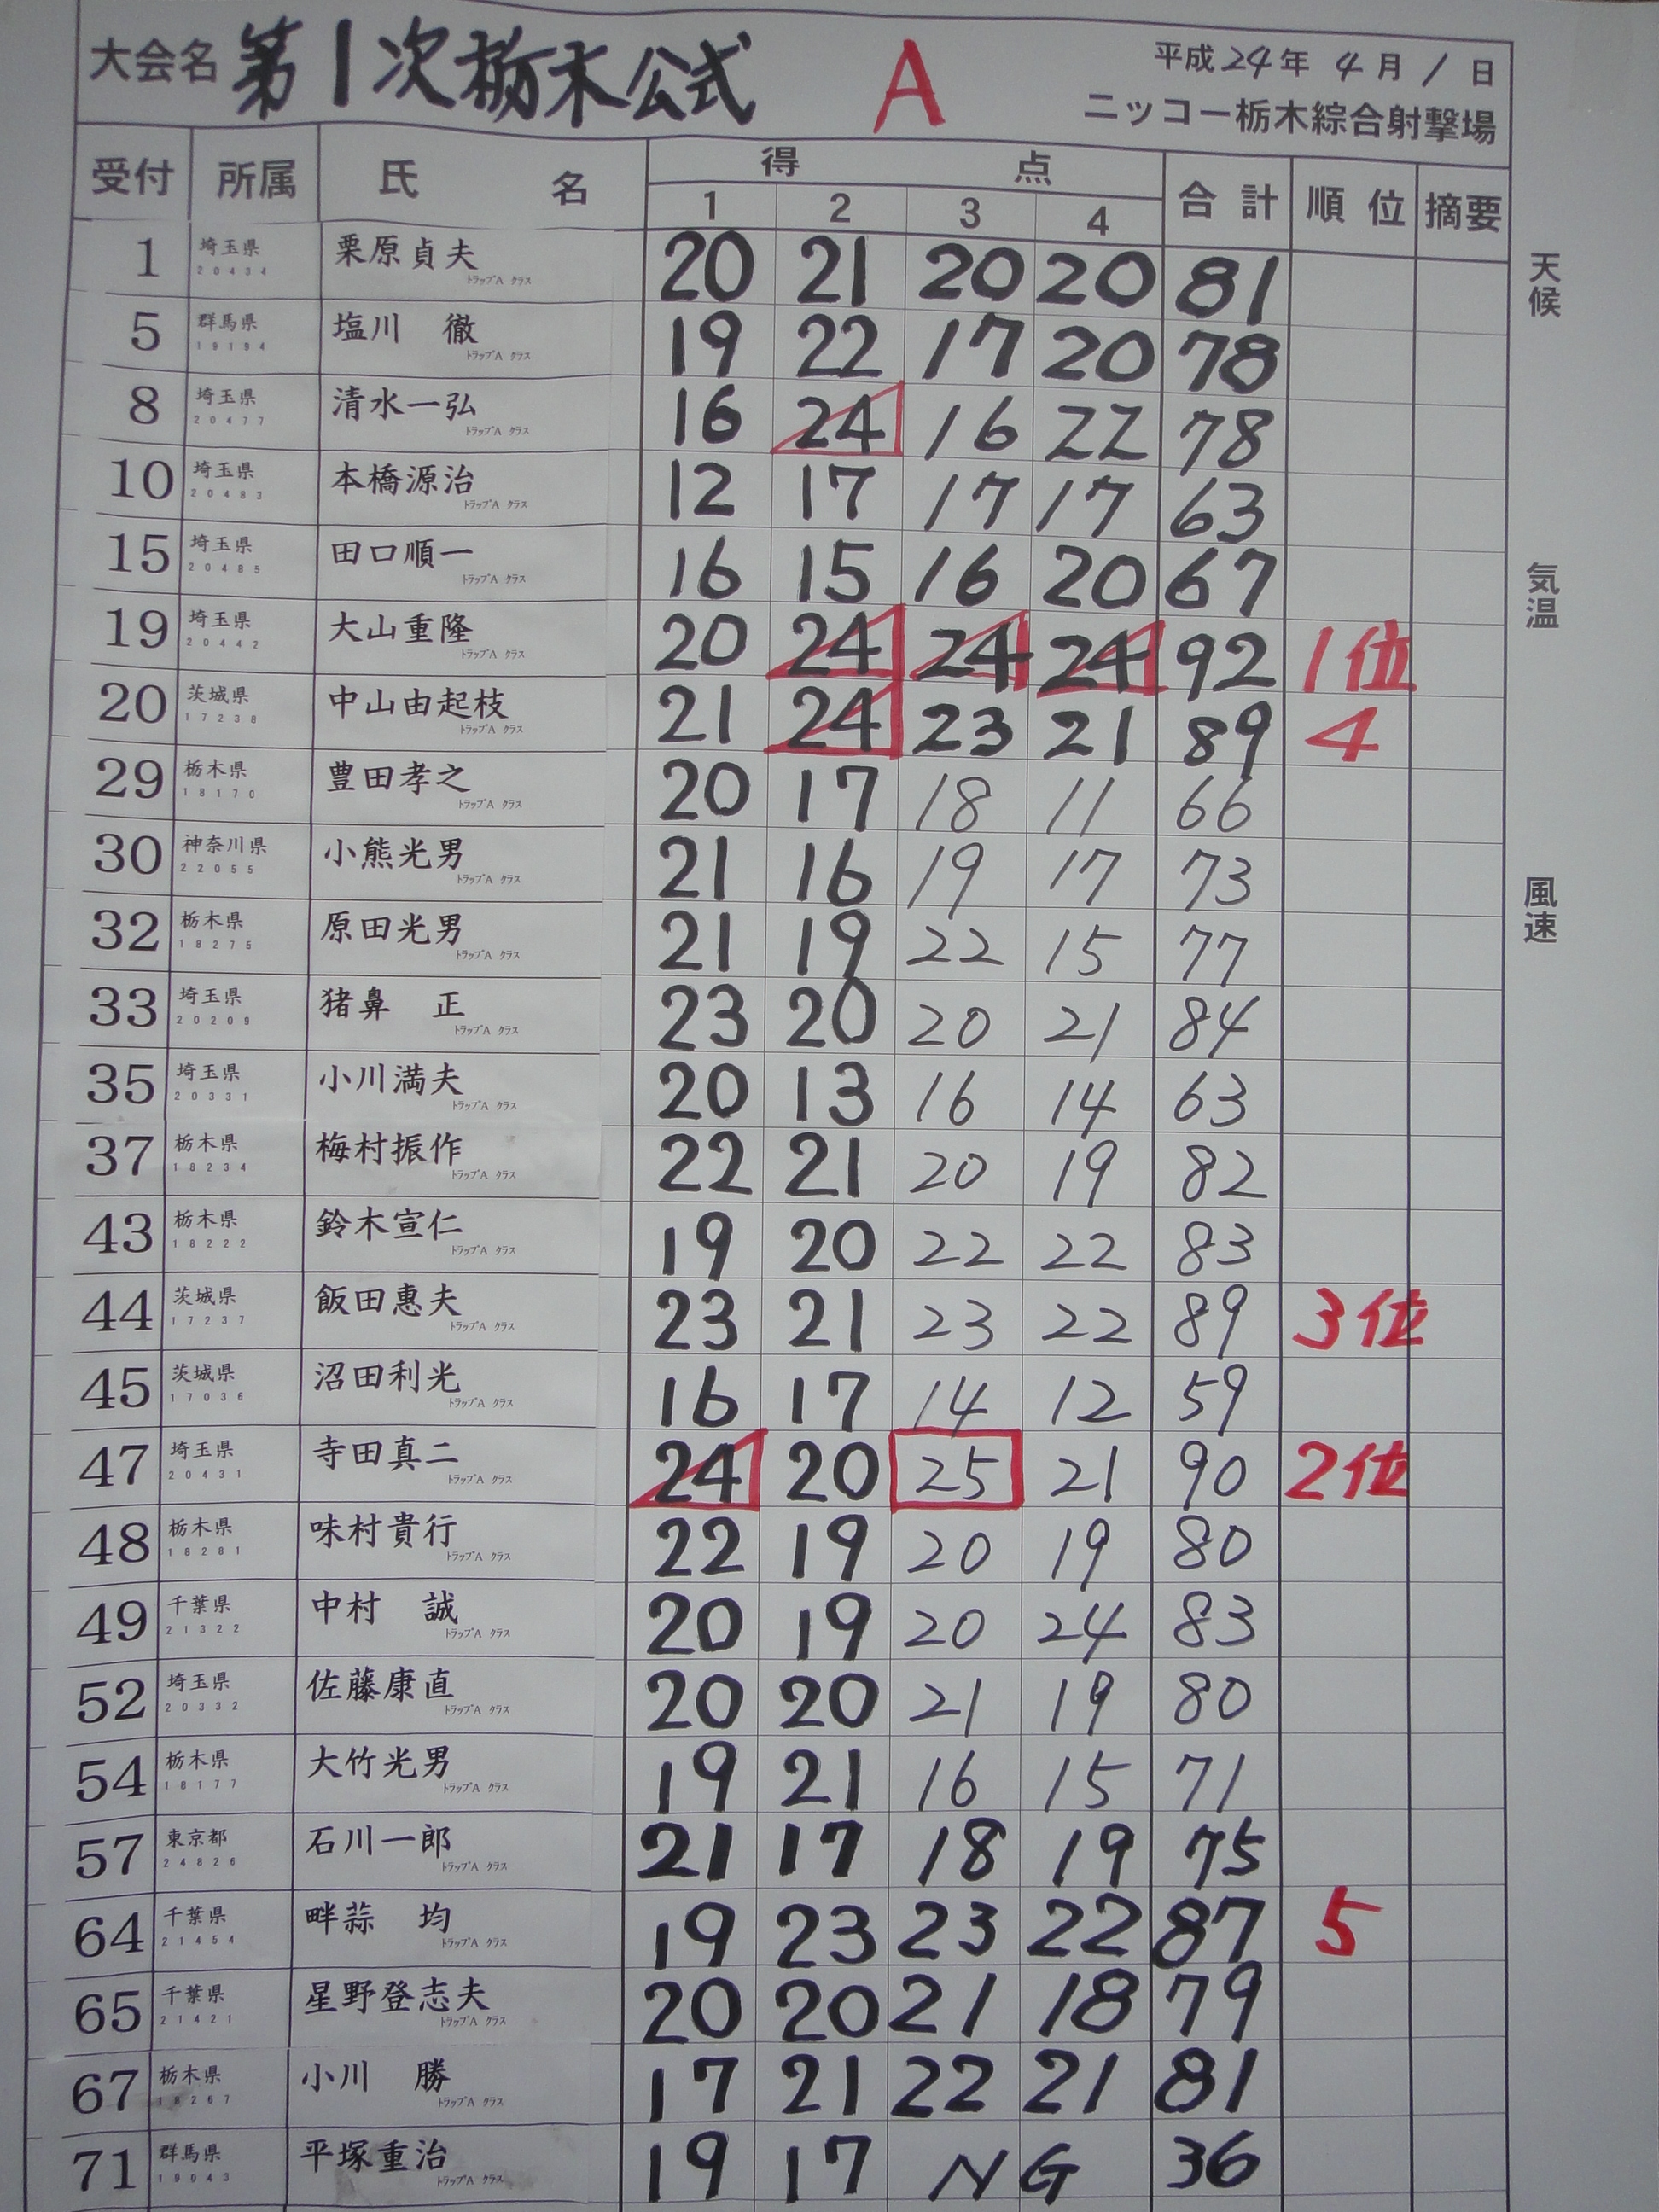 大会名 第1次栃木公式 A 平成24年 4月1日
ニッコー栃木綜合射撃場
受付 所属 氏名 得点 合計 順位 摘要
1 2 3 4
1 埼玉県 20434 栗原貞夫 トラップA クラス 20 21 20 20 81
5 群馬県 19194 塩川 徹 トラップA クラス 19 22 17 20 78
8 埼玉県 20477 清水一弘 トラップA クラス 16 24 16 22 78
10 埼玉県 20483 本橋源治 トラップA クラス 12 17 17 17 63
15 埼玉県 20485 田口順一 トラップA クラス 16 15 16 20 67
19 埼玉県 20442 大山重隆 トラップA クラス 20 24 24 24 92 1位
20 茨城県 17238 中山由起枝 トラップA クラス 21 24 23 21 89 4
29 栃木県 18170 豊田孝之 トラップA クラス 20 17 18 11 66
30 神奈川県 22055 小熊光男 トラップA クラス 21 16 19 17 73
32 栃木県 18275 原田光男 トラップA クラス 21 19 22 15 77
33 埼玉県 20209 猪鼻 正 トラップA クラス 23 20 20 21 84
35 埼玉県 20331 小川満夫 トラップA クラス 20 13 16 14 63
37 栃木県 18234 梅村振作 トラップA クラス 22 21 20 19 82
43 栃木県 18222 鈴木宣仁 トラップA クラス 19 20 22 22 83
44 茨城県 17237 飯田惠夫 トラップA クラス 23 21 23 22 89 3位
45 茨城県 17036 沼田利光 トラップA クラス 16 17 14 12 59
47 埼玉県 20431 寺田真二 トラップA クラス 24 20 25 21 90 2位
48 栃木県 18281 味村貴行 トラップA クラス 22 19 20 19 80
49 千葉県 21322 中村 誠 トラップA クラス 20 19 20 24 83
52 埼玉県 20332 佐藤康直 トラップA クラス 20 20 21 19 80
54 栃木県 18177 大竹光男 トラップA クラス 19 21 16 15 71
57 東京都 24826 石川一郎 トラップA クラス 21 17 18 19 75
64 千葉県 21454 畔蒜 均 トラップA クラス 19 23 23 22 87 5
65 千葉県 21421 星野登志夫 トラップA クラス 20 20 21 18 79
67 栃木県 18267 小川 勝 トラップA クラス 17 21 22 21 81
71 群馬県 19043 平塚重治 トラップA クラス 19 17 N G 36
天候
気温
風速